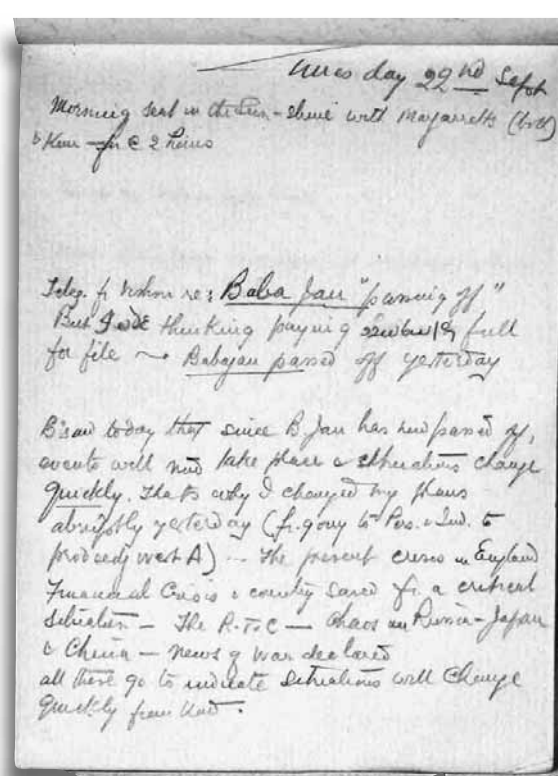 Tuesday 22nd Sept
Morning seat in the Sun-shine with Margaretts (both)
for @ 2 hours
Teleg. fr Vishnu re: Baba Jan "passing off"
But I was thinking paying full
for file → Babajan passed off yesterday
B. said today that since B Jan has now passed off,
events will now take place & situations change
quickly. That's why I changed my plans
abruptly yesterday (fr. going to Pers. & Ind. to
proceedg west A) — The present crises in England
Financial Crisis & country saved fr. a critical
situation — The R.T.C — Chaos in Russia – Japan
& China — news of War declared
all these go to indicate situations will Change
quickly from now.